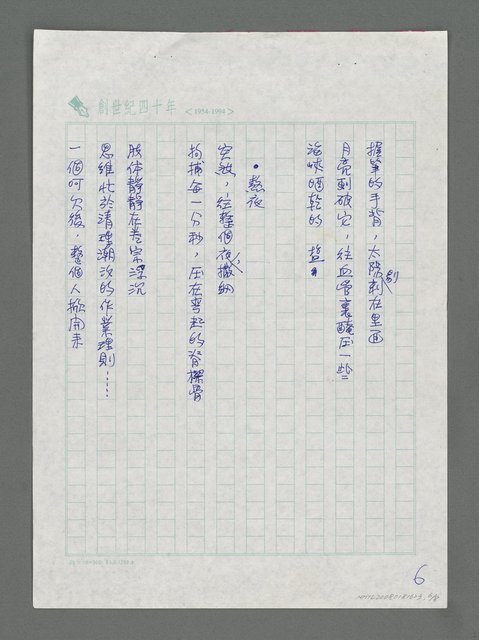 創世紀四十年 <1954-1994>
握筆的手背，太陽刺在里面
月亮刺破它，往血管裏醃压一些
海峽晒乾的 鹽
•熬夜
突致，往整個夜撒網
拘捕每一分秒，压在弯起的脊樑骨
肢体靜靜在卷宗深沉
思維忙於清理潮汐的作業理則……
一個呵欠後，整個人掀開来
6